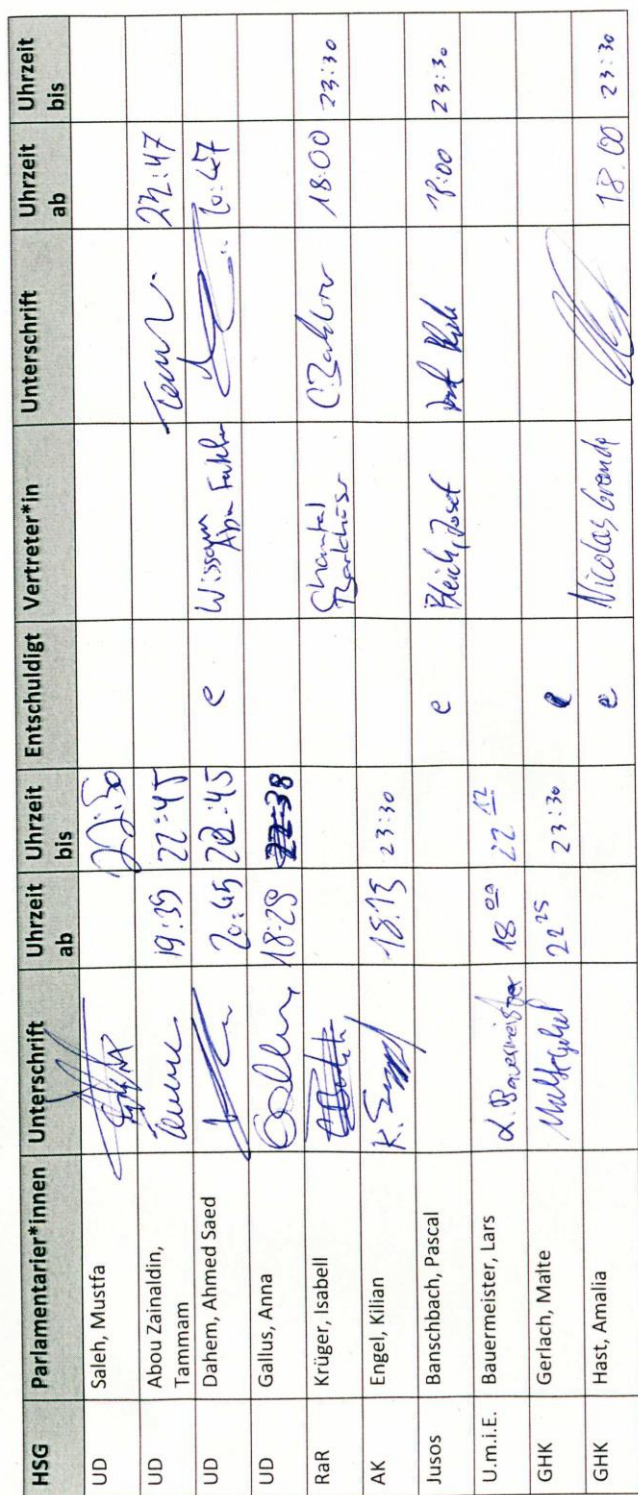 HSG Parlamentarier*innen Unterschrift Uhrzeit ab Uhrzeit bis Entschuldigt Vertreter*in Unterschrift Uhrzeit ab Uhrzeit bis
UD Saleh, Mustfa 22:30
UD Abou Zainaldin, Tammam 19:39 22:45 22:47
UD Dahem, Ahmed Saed 20:45 22:45 e Wissam Abu 20:47
UD Gallus, Anna 18:29 22:38
RaR Krüger, Isabell Chantal 18:00 23:30
AK Engel, Kilian 18:15 23:30
Jusos Banschbach, Pascal e Bleich, Josef 18:00 23:30
U.m.i.E. Bauermeister, Lars L. Bauermeister 18 00 22 12
GHK Gerlach, Malte 22 25 23:30 e
GHK Hast, Amalia e Nicolas Grande 18.00 23:30